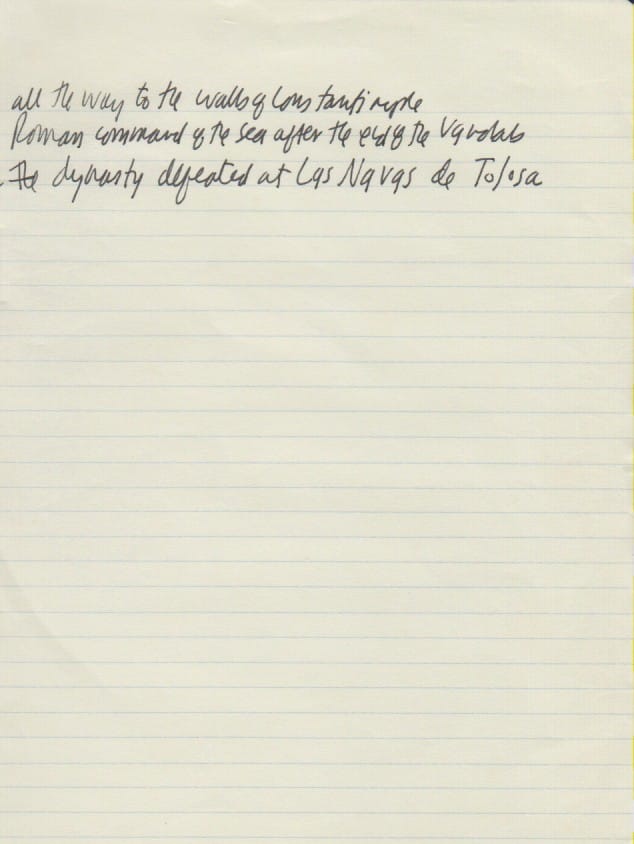 all the way to the walls of Constantinople
Roman command of the sea after the end of the Vandals
The dynasty defeated at Las Navas de Tolosa